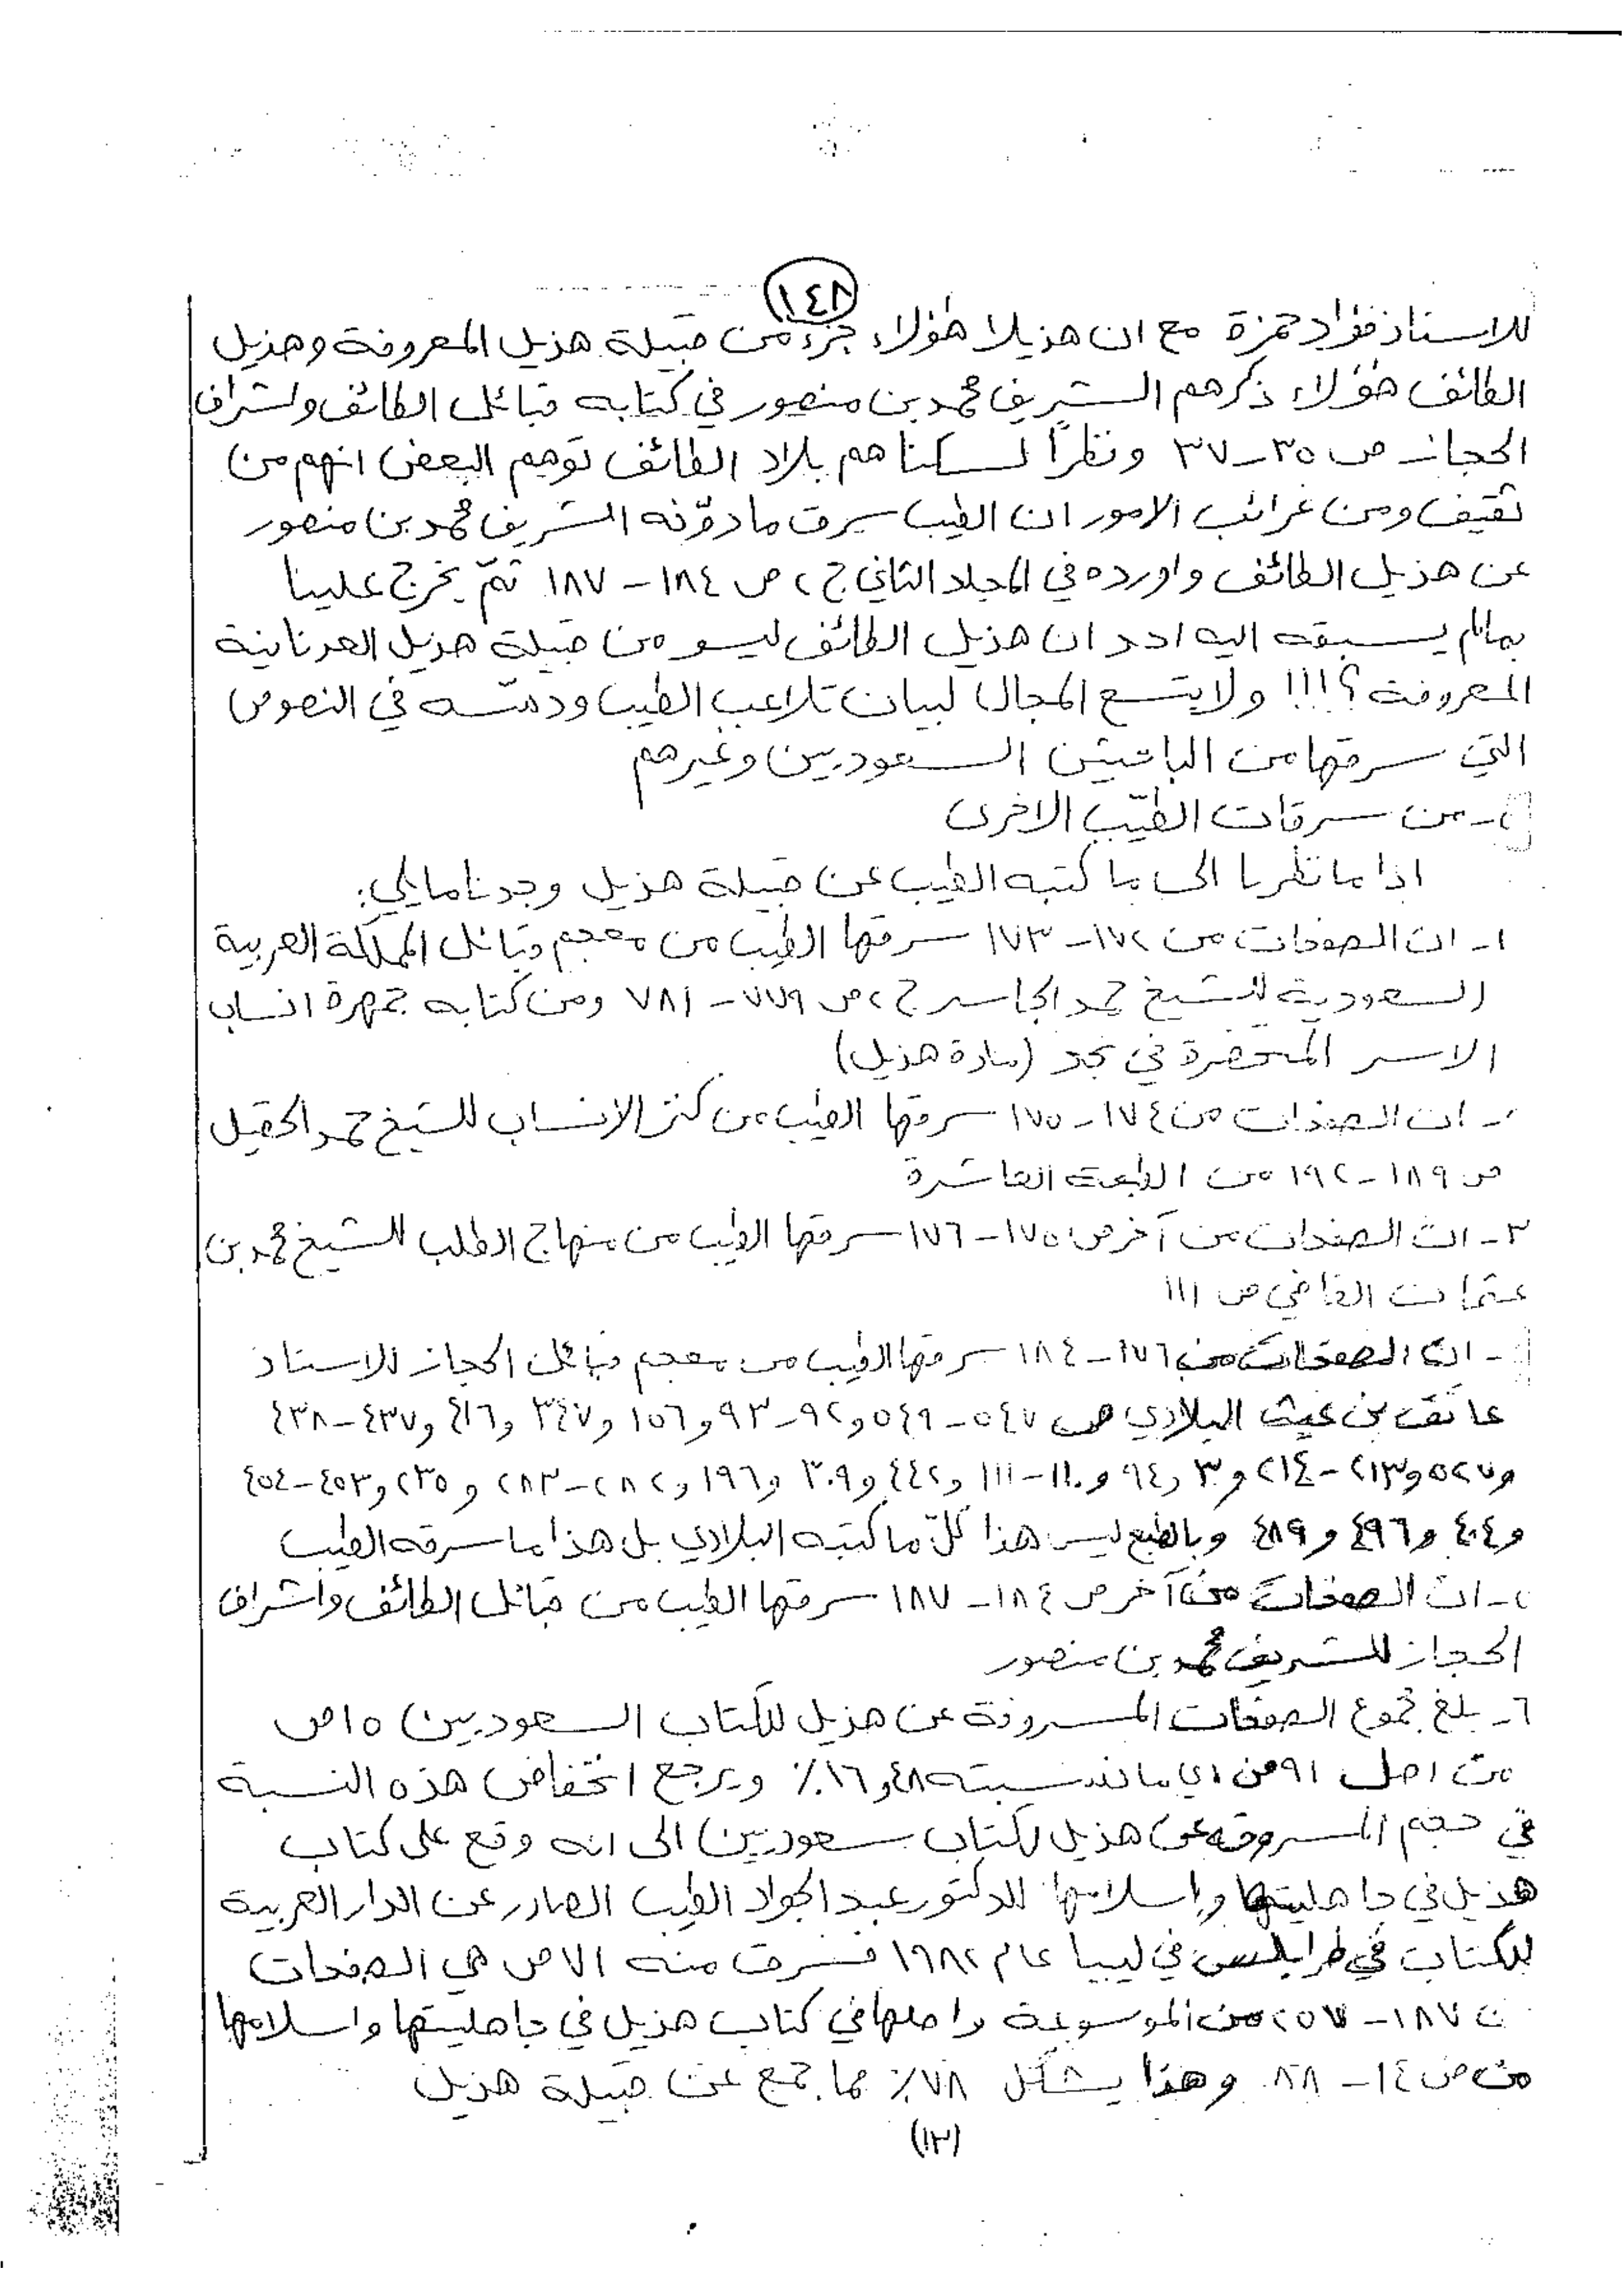 ١٤٨
للاستاذ فؤاد حمزة مع ان هذيلا هؤلاء جزء من قبيلة هذيل المعروفة وهذيل
الطائف هؤلاء ذكرهم الشريف محمد بن منصور في كتابه قبائل الطائف واشراف
الحجاز ص ٣٥-٣٧ ونظراً لسكناهم بلاد الطائف توهم البعض انهم من
ثقيف ومن غرائب الامور ان الطيب سرق ما دوّنه الشريف محمد بن منصور
عن هذيل الطائف واورده في المجلد الثاني ج ٢ ص ١٨٤ - ١٨٧ ثمّ يخرج علينا
بمالم يسبقه اليه احد ان هذيل الطائف ليسو من قبيلة هذيل العدنانية
المعروفة ؟!!! ولا يتسع المجال لبيان تلاعب الطيب ودسّه في النصوص
التي سرقها من الباحثين السعوديين وغيرهم
٢- من سرقات الطيّب الاخرى
اذا ما نظرنا الى ما كتبه الطيب عن قبيلة هذيل وجدنا مايلي:
١- ان الصفحات من ١٧٢-١٧٣ سرقها الطيب من معجم قبائل المملكة العربية
السعودية للشيخ حمد الجاسر ج ٢ ص ٧٧٩ - ٧٨١ ومن كتابه جمهرة انساب
الاسر المتحضرة في نجد (مادة هذيل)
- ان الصفحات من ١٧٤-١٧٥ سرقها الطيب من كنز الانساب للشيخ حمد الحقيل
ص ١٨٩-١٩٢ من الطبعة العاشرة
٣- ان الصفحات من آخر ص ١٧٥-١٧٦ سرقها الطيب من منهاج الطلب للشيخ محمد بن
عثمان القاضي ص ١١١
- ان الصفحات من ١٧٦-١٨٤ سرقها الطيب من معجم قبائل الحجاز للاستاذ
عاتق بن غيث البلادي ص ٥٤٧-٥٤٩ و٩٢-٩٣ و١٥٦ و٣٤٧ و٤١٦ و٤٣٧-٤٣٨
و٥٢٧ و٢١٣-٢١٤ و٣ و٩٤ و١١٠-١١١ و٤٤٢ و٣٠٩ و١٩٦ و٢٨٢-٢٨٣ و٢٣٥ و٤٥٣-٤٥٤
و٤٠٤ و٤٩٦ و٤٨٩ وبالطبع ليس هذا كلّ ما كتبه البلادي بل هذا ما سرقه الطيب
- ان الصفحات من آخر ص ١٨٤-١٨٧ سرقها الطيب من قبائل الطائف وأشراف
الحجاز للشريف محمد بن منصور
٦- بلغ مجموع الصفحات المسروقة عن هذيل للكتاب السعوديين ١٥ ص
من اصل ٩١ ص اي ما نسبته ١٦,٤٨٪ ويرجع انخفاض هذه النسبة
في حجم المسروقه عن هذيل لكتاب سعوديين الى انه وقع على كتاب
هذيل في جاهليتها وإسلامها للدكتور عبد الجواد الطيب الصادر عن الدار العربية
للكتاب في طرابلس في ليبيا عام ١٩٨٢ فسرق منه ٧١ ص هي الصفحات
ن ١٨٧-٢٥٧ من الموسوعة واصلها في كتاب هذيل في جاهليتها واسلامها
من ص ١٤ - ٨٨ وهذا يشكل ٧٨٪ مما جمع عن قبيلة هذيل
(١٣)